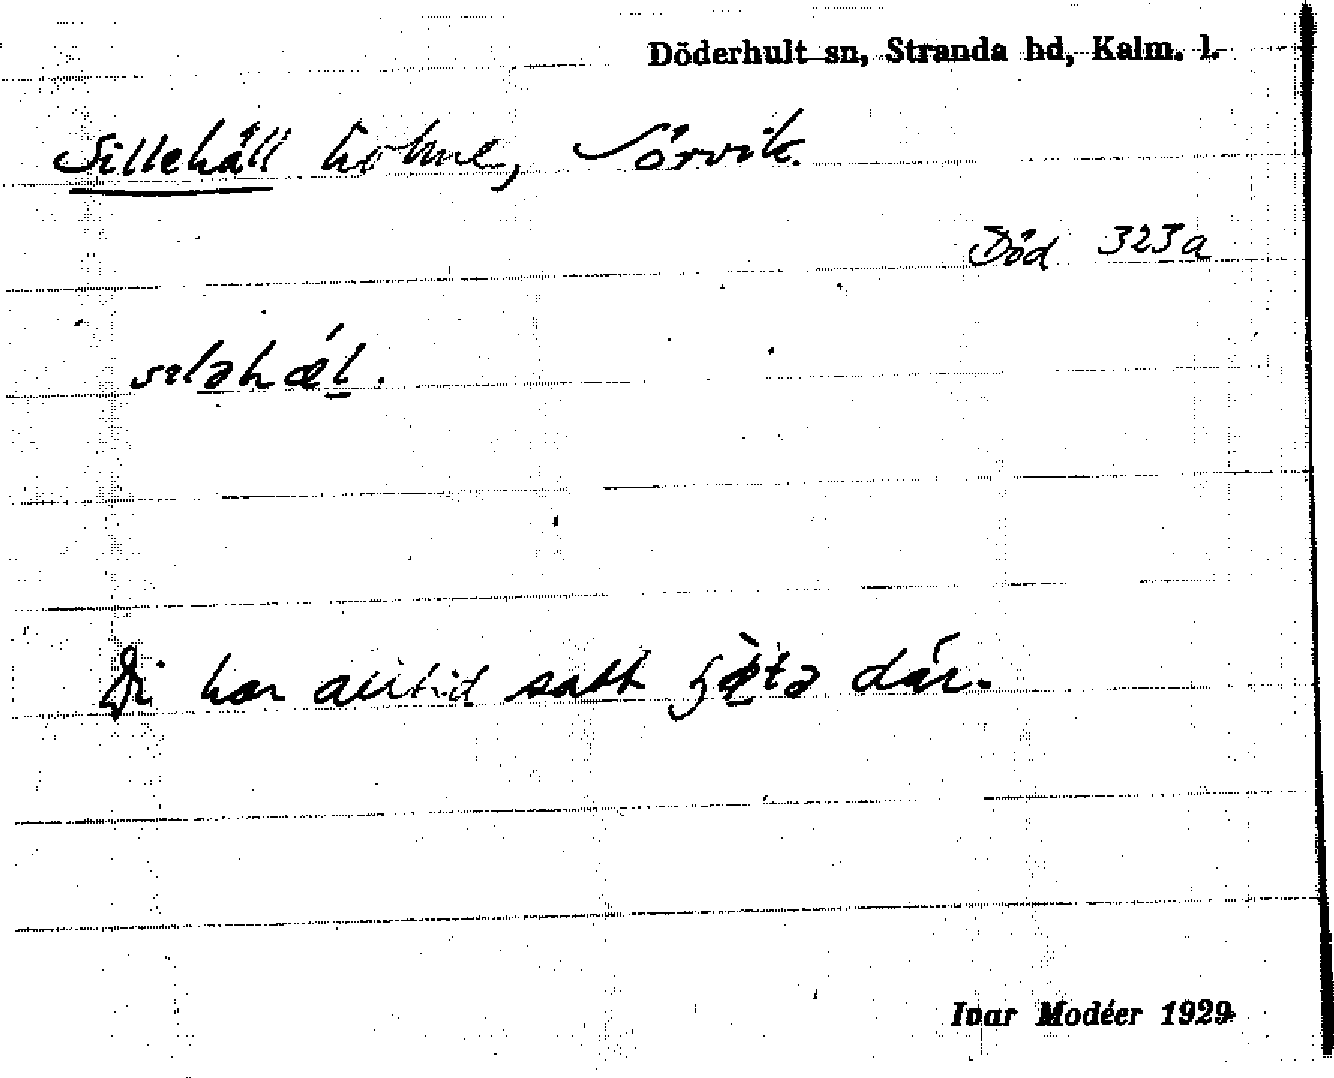 Döderhult sn, Stranda hd, Kalm. l.
Sillehäll holme, Sörvik.
Död 323a
sələhæl.
Di har alltid satt där.
Ivar Modéer 1929